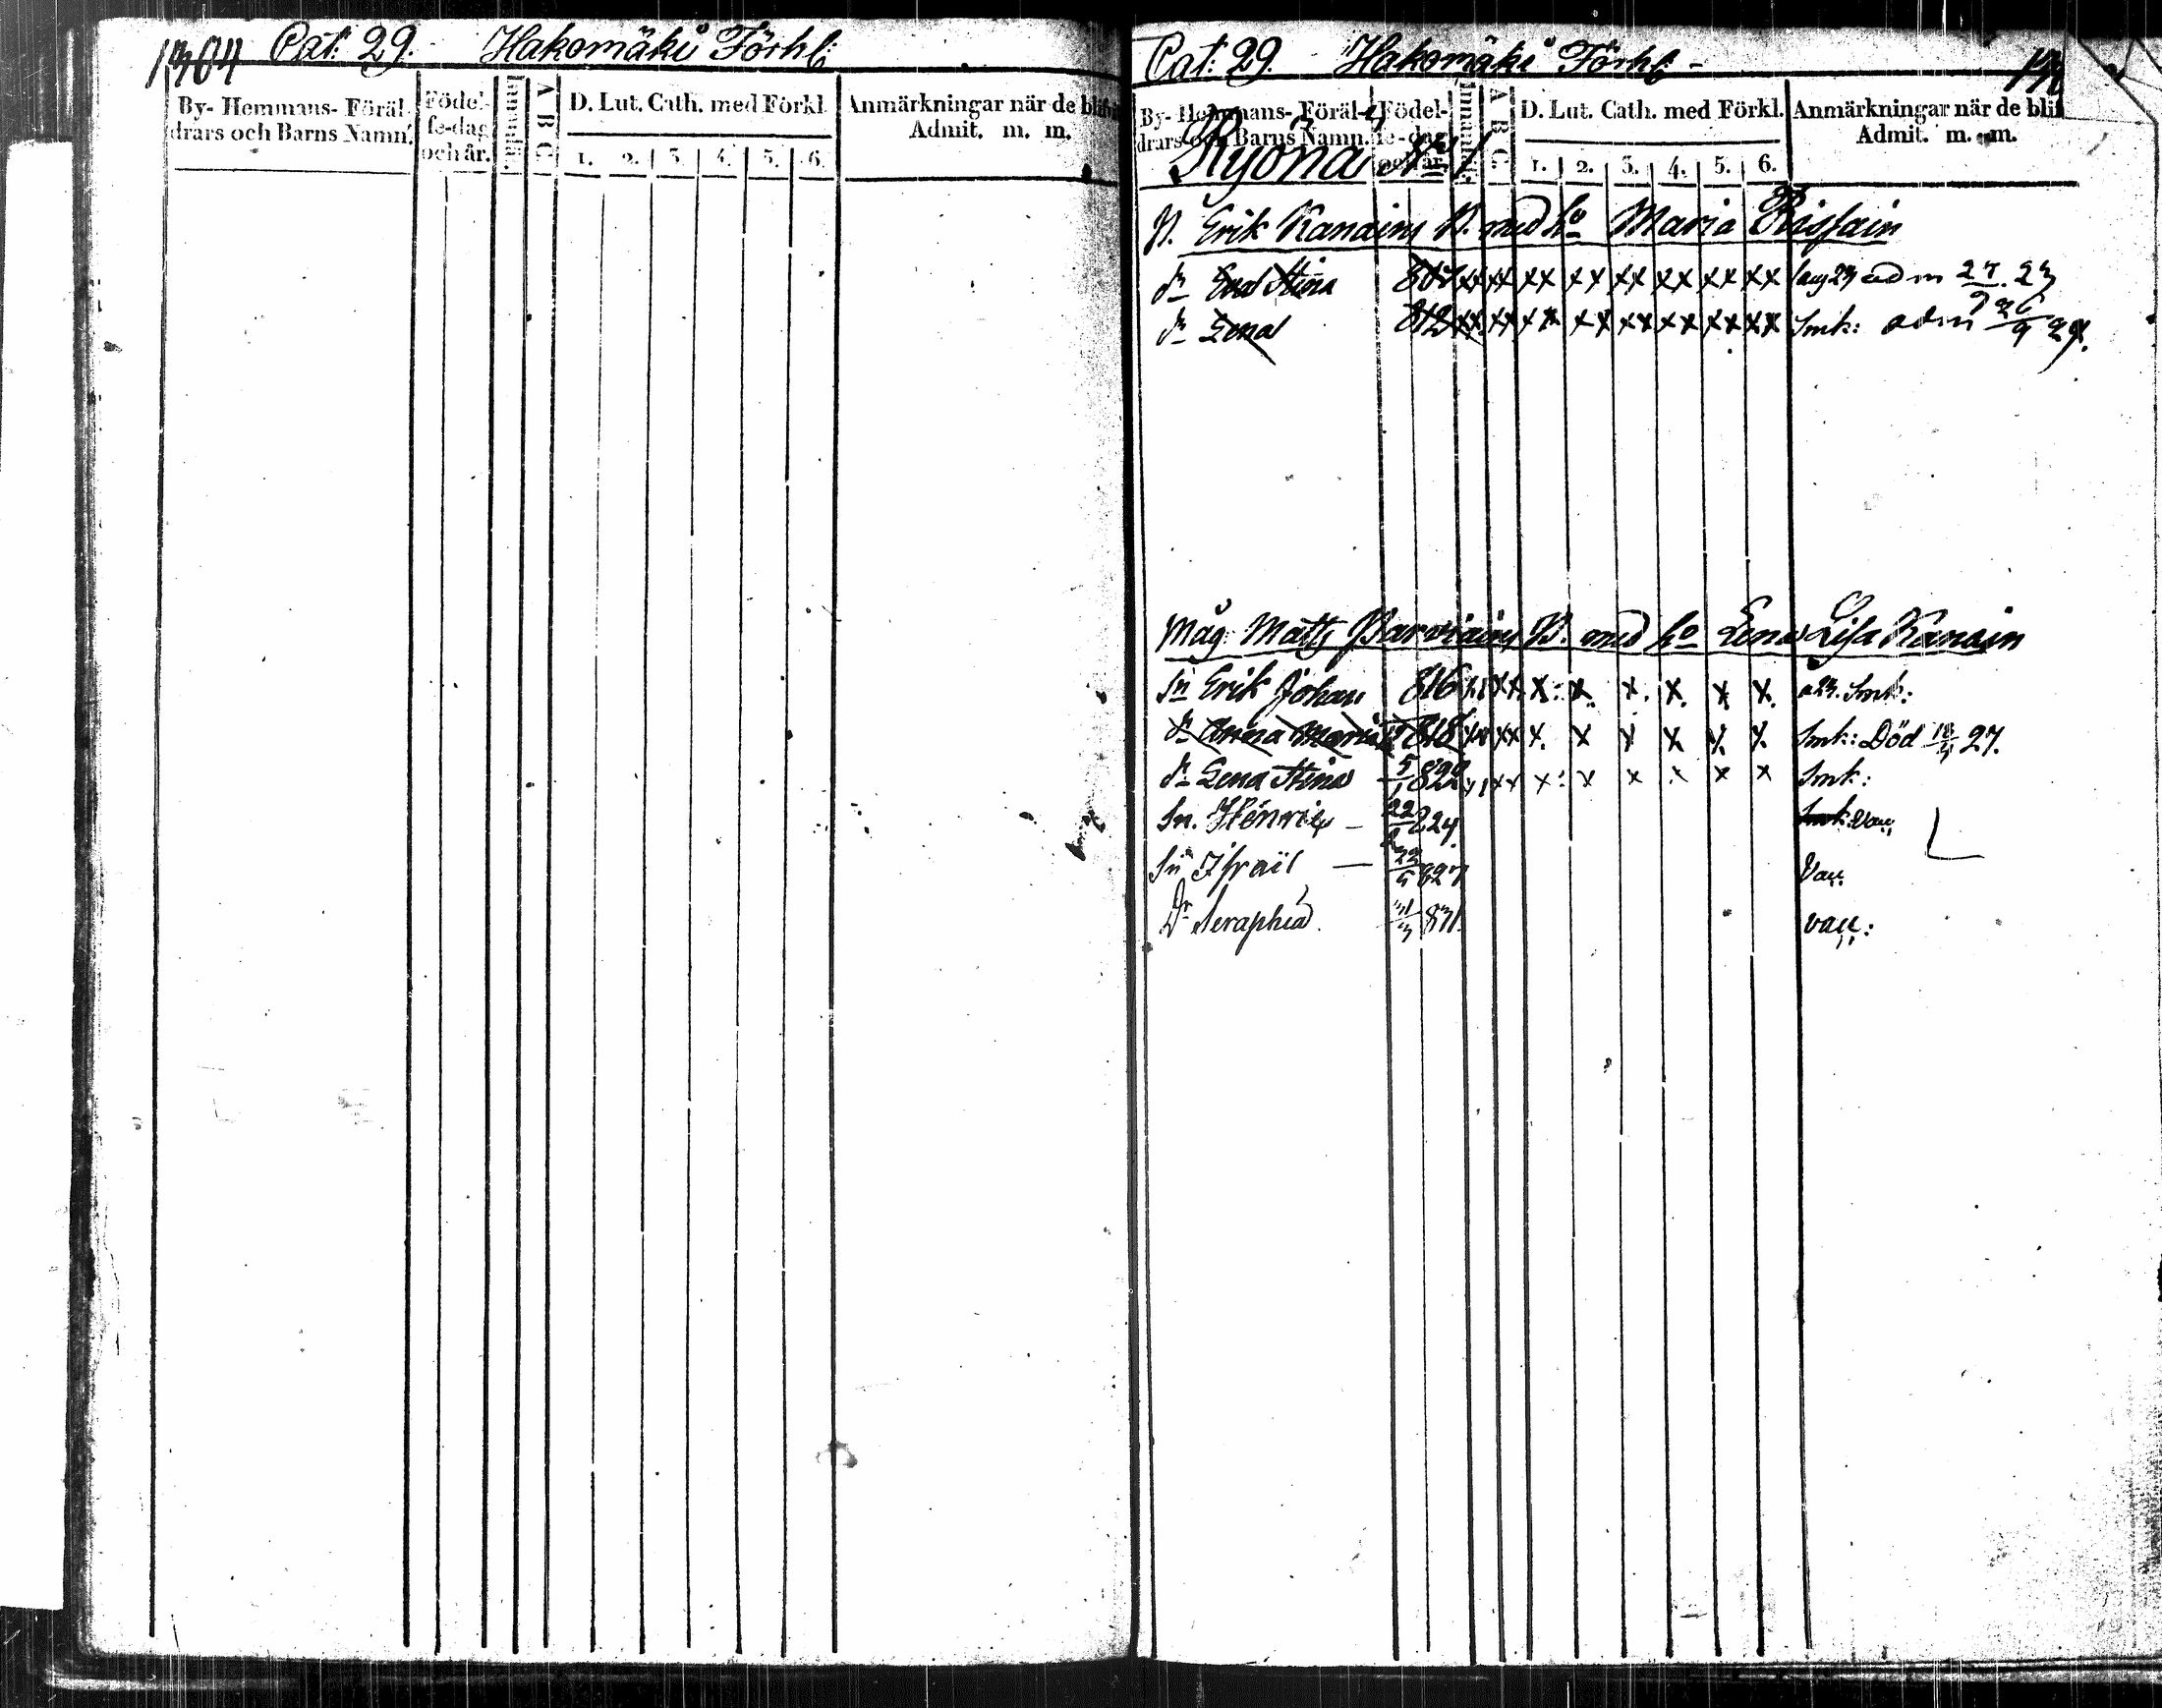 1304 Cat: 29. Hakomäki Förhl:
By- Hemmans- Föräl-
drars och Barns Namn.
Födel-
se-dag
och år.
Innanläs.
A B C
D. Lut. Cath. med Förkl.
1. 2. 3. 4. 5. 6.
Anmärkningar när de blifvit
Admit. m. m.
Cat: 29. Hakomäki Förhl:
By- Hemmans- Föräl-
drars och Barns Namn.
Födel-
se-dag
och år.
Innanläs.
A B C
D. Lut. Cath. med Förkl.
1. 2. 3. 4. 5. 6.
Anmärkningar när de blif
Admit. m. m.
Ryönä
Erik Kanain B. med ho Maria
dr Eva Stina xx xx xx xx xx xx xx xx adm 23
dr Lena 812 xx xx xx xx xx xx xx xx Smk: adm 26/9 29.
Måg Matts Parviain B. med ho Lena Lisa Kanain
Sn Erik Johan 816 xx xx. x: x. x. x. x x. Smk:
dr Anna Maria 818 xx xx x. x x x. x. x. Smk: Död 27.
dr Lena Stina xx x: x x x x x Smk:
Sn. Henric 22 824. Smk van,
Sn Israil 827 Van
Dr Seraphia. 831. van: